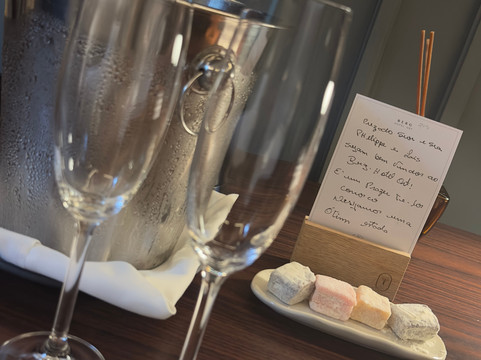 BURG
Cuzado Sror e Sra
Philippe e Luis
sejam bem vindos ao
Burg Hotel Oct,
É um Prazer Tê-los
conosco
Desejamos uma
Ótima estada